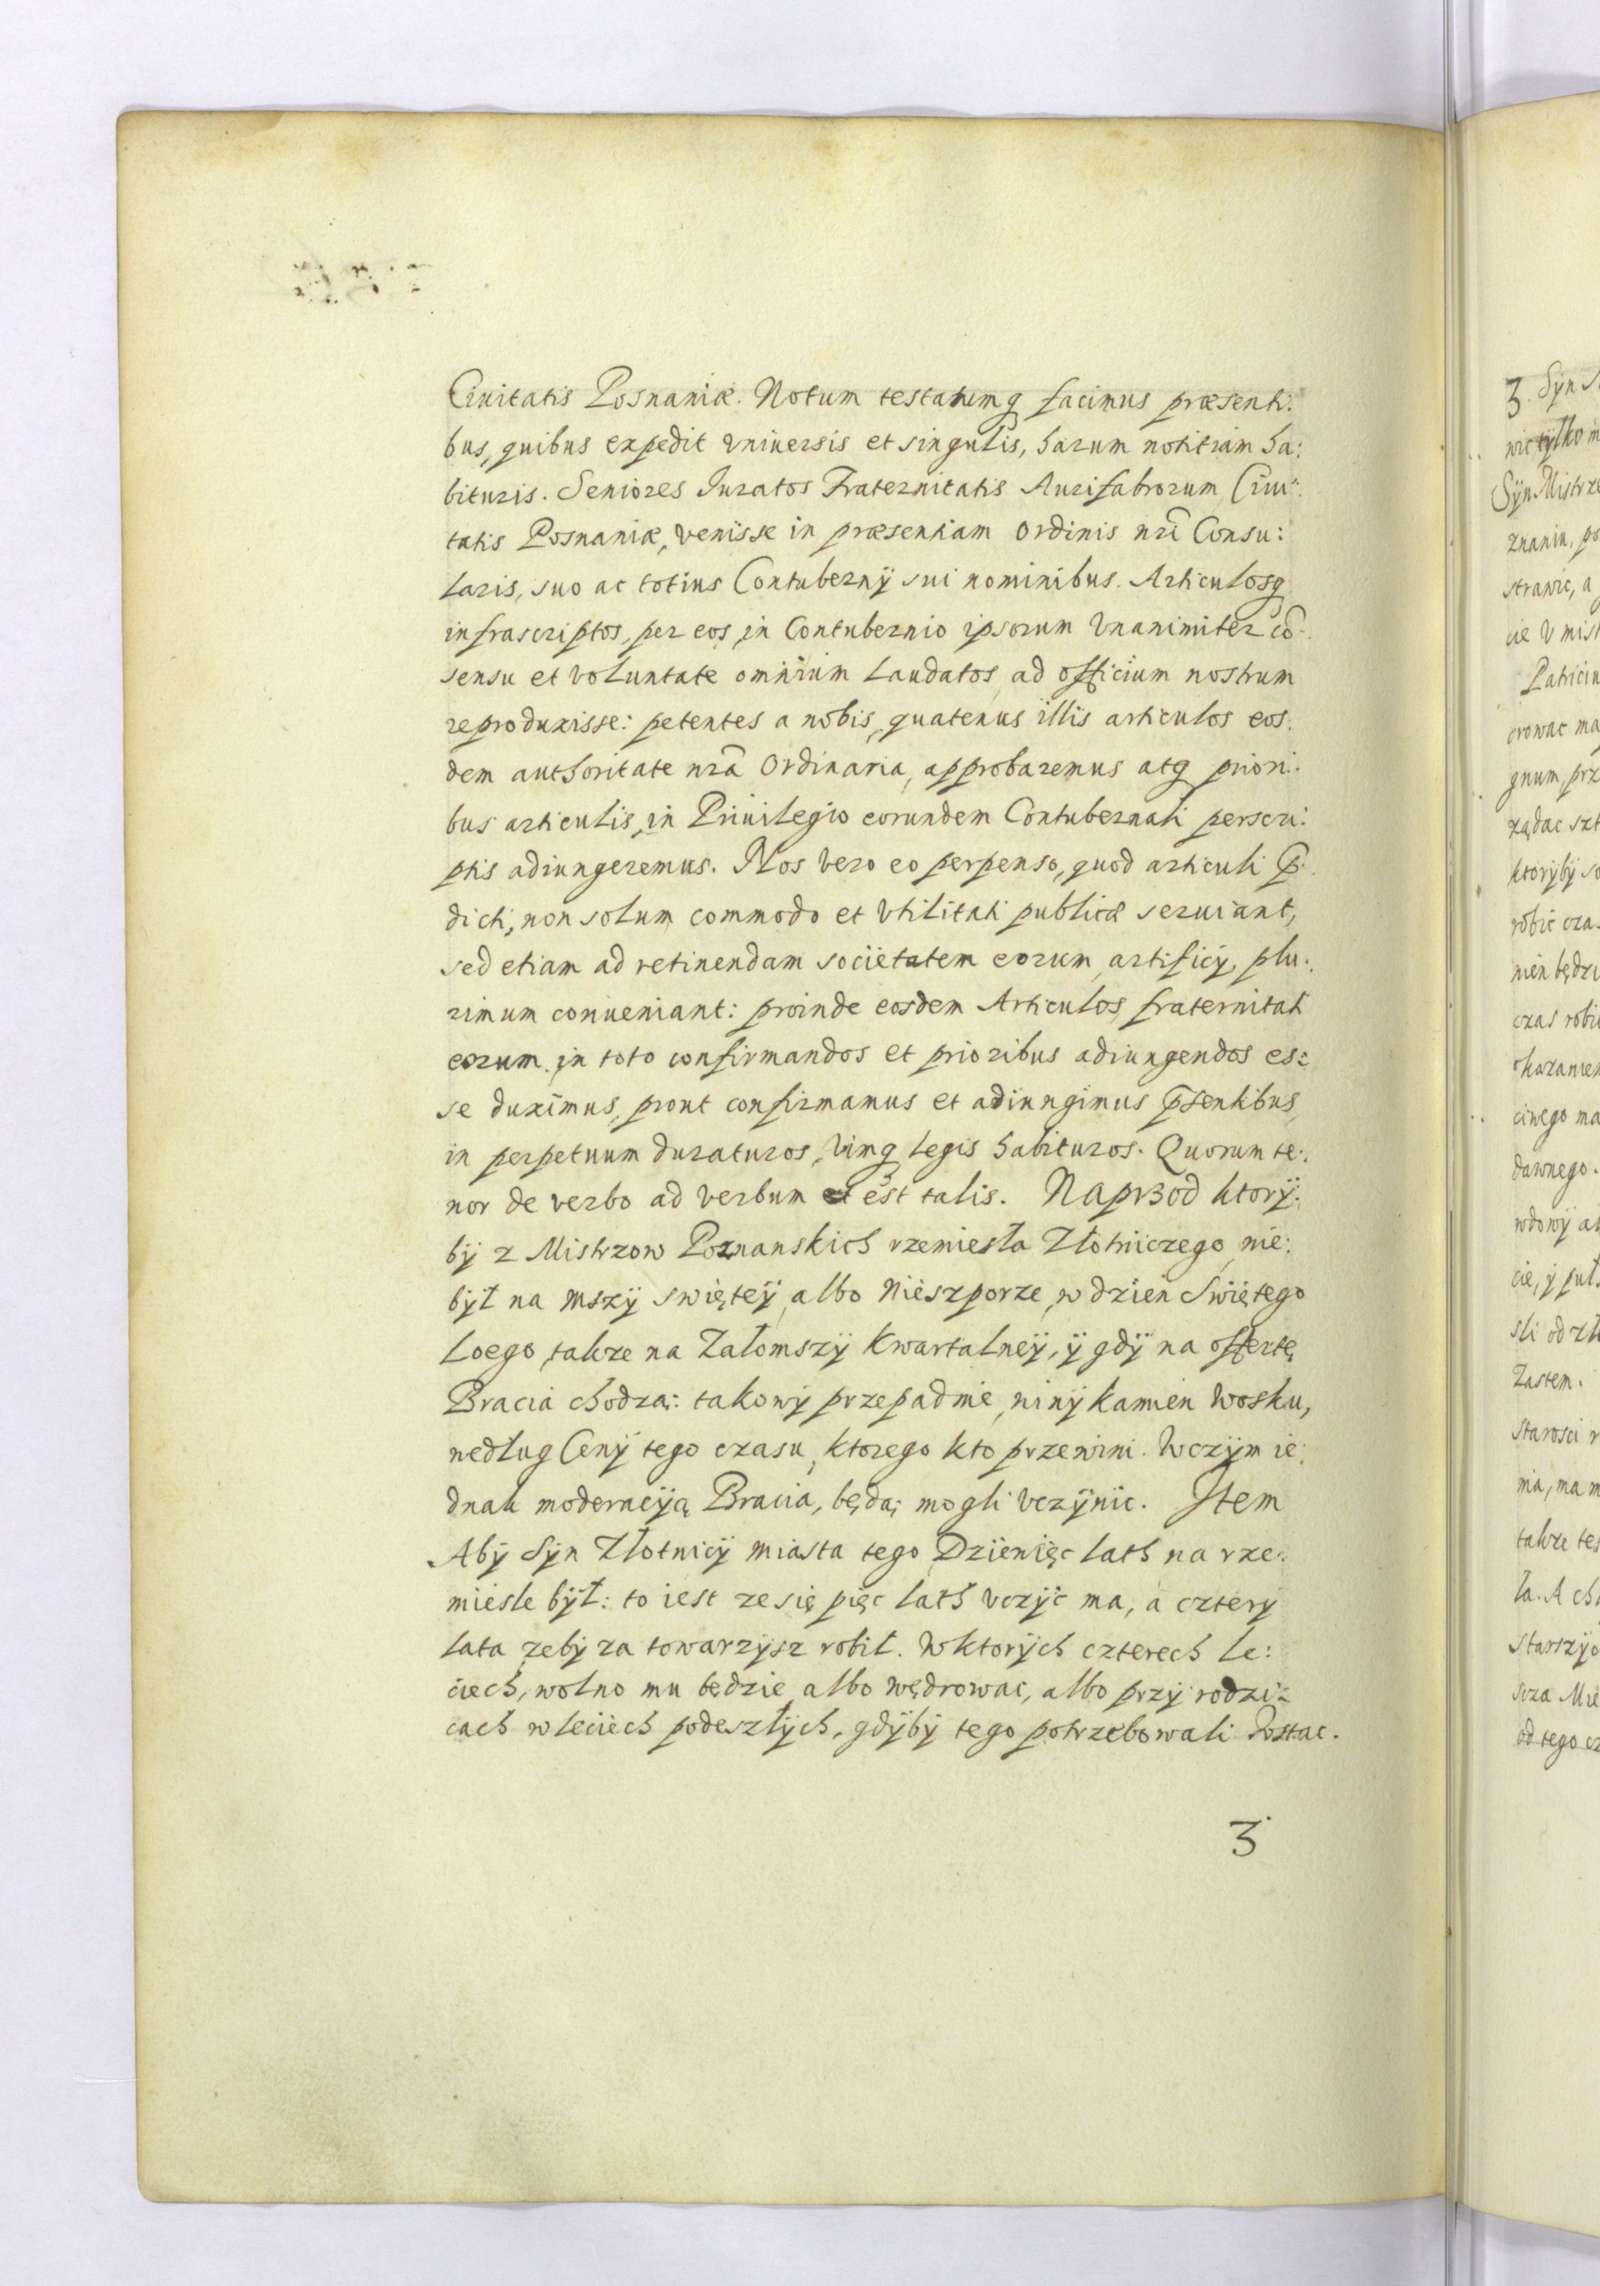 Ciuitatis Posnaniæ. Notum testatumq facimus præsenti:
bus, quibus expedit vniuersis et singulis, harum notitiam ha:
bituris. Seniores Iuratos Fraternitatis Aurifabrorum Ciui:
tatis Posnaniæ, venisse in præsentiam Ordinis nri Consu:
laris, suo ac totius Contubernÿ sui nominibus. Articulosq
infrascriptos, per eos, in Contubernio ipsorum Vnanimiter cõ:
sensu et voluntate omnium laudatos, ad officium nostrum
reproduxisse: petentes a nobis, quatenus illis articulos eos:
dem authoritate nrã Ordinaria, approbaremus atq priori:
bus articulis, in Priuilegio eorundem Contubernali perscri:
ptis adiungeremus. Nos vero eo perpenso, quod articuli p̃:
dicti, non solum commodo et vtilitati publicæ seruiant,
sed etiam ad retinendam societatem eorum artificÿ, plu:
rimum conueniant: proinde eosdem Articulos, fraternitati
eorum in toto confirmandos et prioribus adiungendos es:
se duximus, prout confirmamus et adiungimus p̃sentibus,
in perpetuum duraturos, Vimq legis habituros. Quorum te:
nor de verbo ad verbum est talis. Naprzod ktorÿ:
bÿ z Mistrzow Poznanskich rzemiesła Złotniczego, nie:
bÿł na mszÿ swiętey, albo Nieszporze, w dzien Swiętego
Loego, takze na Załomszÿ Kwartalneÿ, ÿ gdÿ na offertę
Bracia chodzą: takowÿ przepadnie winÿ kamien wosku,
według Cenÿ tego czasu, ktorego kto przewini. Wczÿm ie:
dnak moderacÿą Bracia, będą mogli vczÿnic. Item
Abÿ Sÿn Złotnicÿ miasta tego Dziewięc lath na rze:
miesle bÿł: to iest ze się pięc lath vczÿc ma, a czterÿ
lata zebÿ za towarzÿsz robił. Wktorÿch czterech le:
ciech, wolno mu będzie albo wędrowac, albo przÿ rodzi:
cach w leciech podeszłÿch, gdÿbÿ tego potrzebowali zostac.
3
3. Sÿn
tÿlko
Sÿn Mistrz
znaniu, po
strawic, a
cie v mist
Patriciu